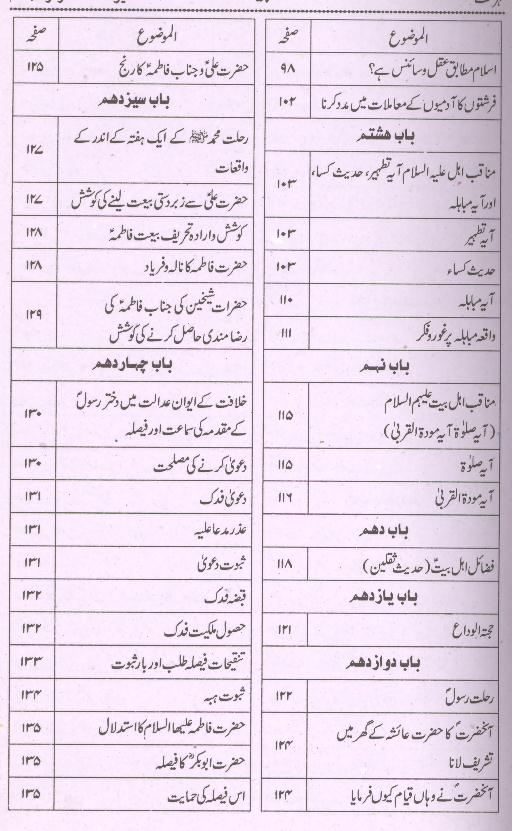 الموضوع صفحہ
اسلام مطابق عقل و سائنس ہے؟ ۹۸
فرشتوں کا آدمیوں کے معاملات میں مدد کرنا ۱۰۲
باب هشتم
مناقب اہل علیہ السلام آیہ تطہیر، حدیث کساء،
اور آیہ مباہلہ ۱۰۳
آیہ تطہیر ۱۰۳
حدیث کساء ۱۰۳
آیہ مباہلہ ۱۱۰
واقعہ مباہلہ پر غور و فکر ۱۱۱
باب نہم
مناقب اہل بیت علیہم السلام
(آیہ صلوٰۃ آیہ مودۃ القربیٰ) ۱۱۵
آیہ صلوٰۃ ۱۱۵
آیہ مودۃ القربیٰ ۱۱۶
باب دهم
فضائل اہل بیتؑ (حدیث ثقلین) ۱۱۸
باب یازدهم
حجۃ الوداع ۱۲۱
باب دوازدهم
رحلت رسولؐ ۱۲۲
آنحضرتؐ کا حضرت عائشہ کے گھر میں
تشریف لانا ۱۲۴
آنحضرتؐ نے وہاں قیام کیوں فرمایا ۱۲۴
الموضوع صفحہ
حضرت علیؑ و جناب فاطمہؑ کا رنج ۱۲۵
باب سیزدهم
رحلت محمدﷺ کے ایک ہفتہ کے اندر کے
واقعات ۱۲۷
حضرت علیؑ سے زبردستی بیعت لینے کی کوشش ۱۲۷
کوشش و ارادہ تحریف بیعت فاطمہؑ ۱۲۸
حضرت فاطمہ کا نالہ و فریاد ۱۲۸
حضرات شیخین کی جناب فاطمہؑ کی
رضا مندی حاصل کرنے کی کوشش ۱۲۹
باب چہاردهم
خلافت کے ایوان عدالت میں دختر رسولؐ
کے مقدمہ کی سماعت اور فیصلہ ۱۳۰
دعویٰ کرنے کی مصلحت ۱۳۰
دعویٰ فدک ۱۳۱
عذر مدعا علیہ ۱۳۱
ثبوت دعویٰ ۱۳۱
قبضہ فدک ۱۳۲
حصول ملکیت فدک ۱۳۲
تنقیحات فیصلہ طلب اور بار ثبوت ۱۳۳
ثبوت ہبہ ۱۳۴
حضرت فاطمہ علیھا السلام کا استدلال ۱۳۵
حضرت ابوبکرؓ کا فیصلہ ۱۳۵
اس فیصلہ کی حمایت ۱۳۵